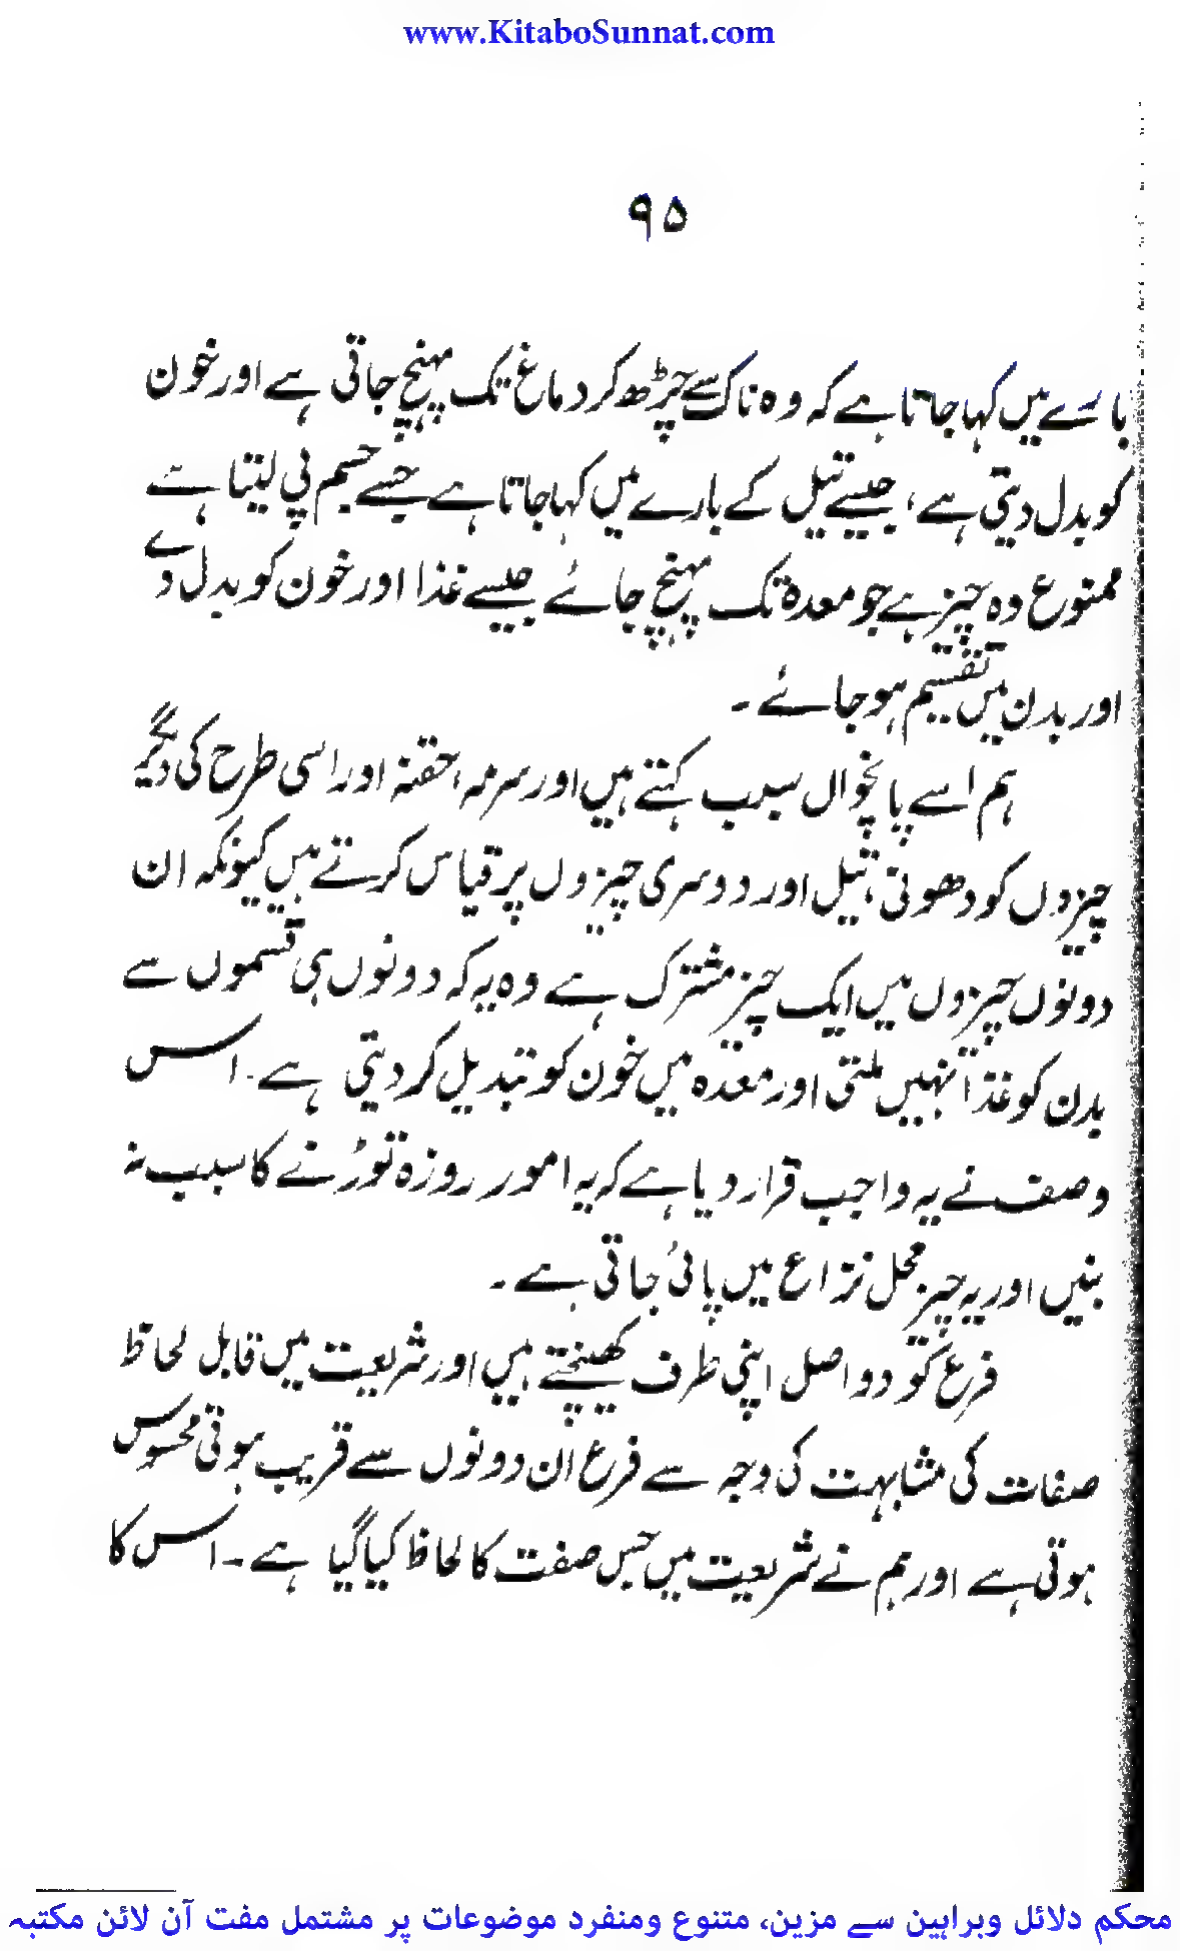 www.KitaboSunnat.com
۹۵
بارے میں کہا جاتا ہے کہ وہ ناک سے چڑھ کر دماغ تک پہنچ جاتی ہے اور خون
کو بدل دیتی ہے، جیسے تیل کے بارے میں کہا جاتا ہے جسے جسم پی لیتا ہے
ممنوع وہ چیز ہے جو معدہ تک پہنچ جائے جیسے غذا اور خون کو بدل دے
اور بدن میں تقسیم ہو جائے ۔
ہم اسے پانچواں سبب کہتے ہیں اور سرمہ، حقنہ اور اسی طرح کی دیگر
چیزوں کو دھونی، تیل اور دوسری چیزوں پر قیاس کرتے ہیں کیونکہ ان
دونوں چیزوں میں ایک چیز مشترک ہے وہ یہ کہ دونوں ہی قسموں سے
بدن کو غذا نہیں ملتی اور معدہ میں خون کو تبدیل کر دیتی ہے ۔ اس
وصف نے یہ واجب قرار دیا ہے کہ یہ امور روزہ توڑنے کا سبب نہ
بنیں اور یہ چیز محل نزاع میں پائی جاتی ہے ۔
فرع کو دو اصل اپنی طرف کھینچتے ہیں اور شریعت میں قابل لحاظ
صفات کی مشابہت کی وجہ سے فرع ان دونوں سے قریب ہوتی محسوس
ہوتی ہے اور ہم نے شریعت میں جس صفت کا لحاظ کیا گیا ہے ۔ اس کا
محکم دلائل وبراہین سے مزین، متنوع ومنفرد موضوعات پر مشتمل مفت آن لائن مکتبہ